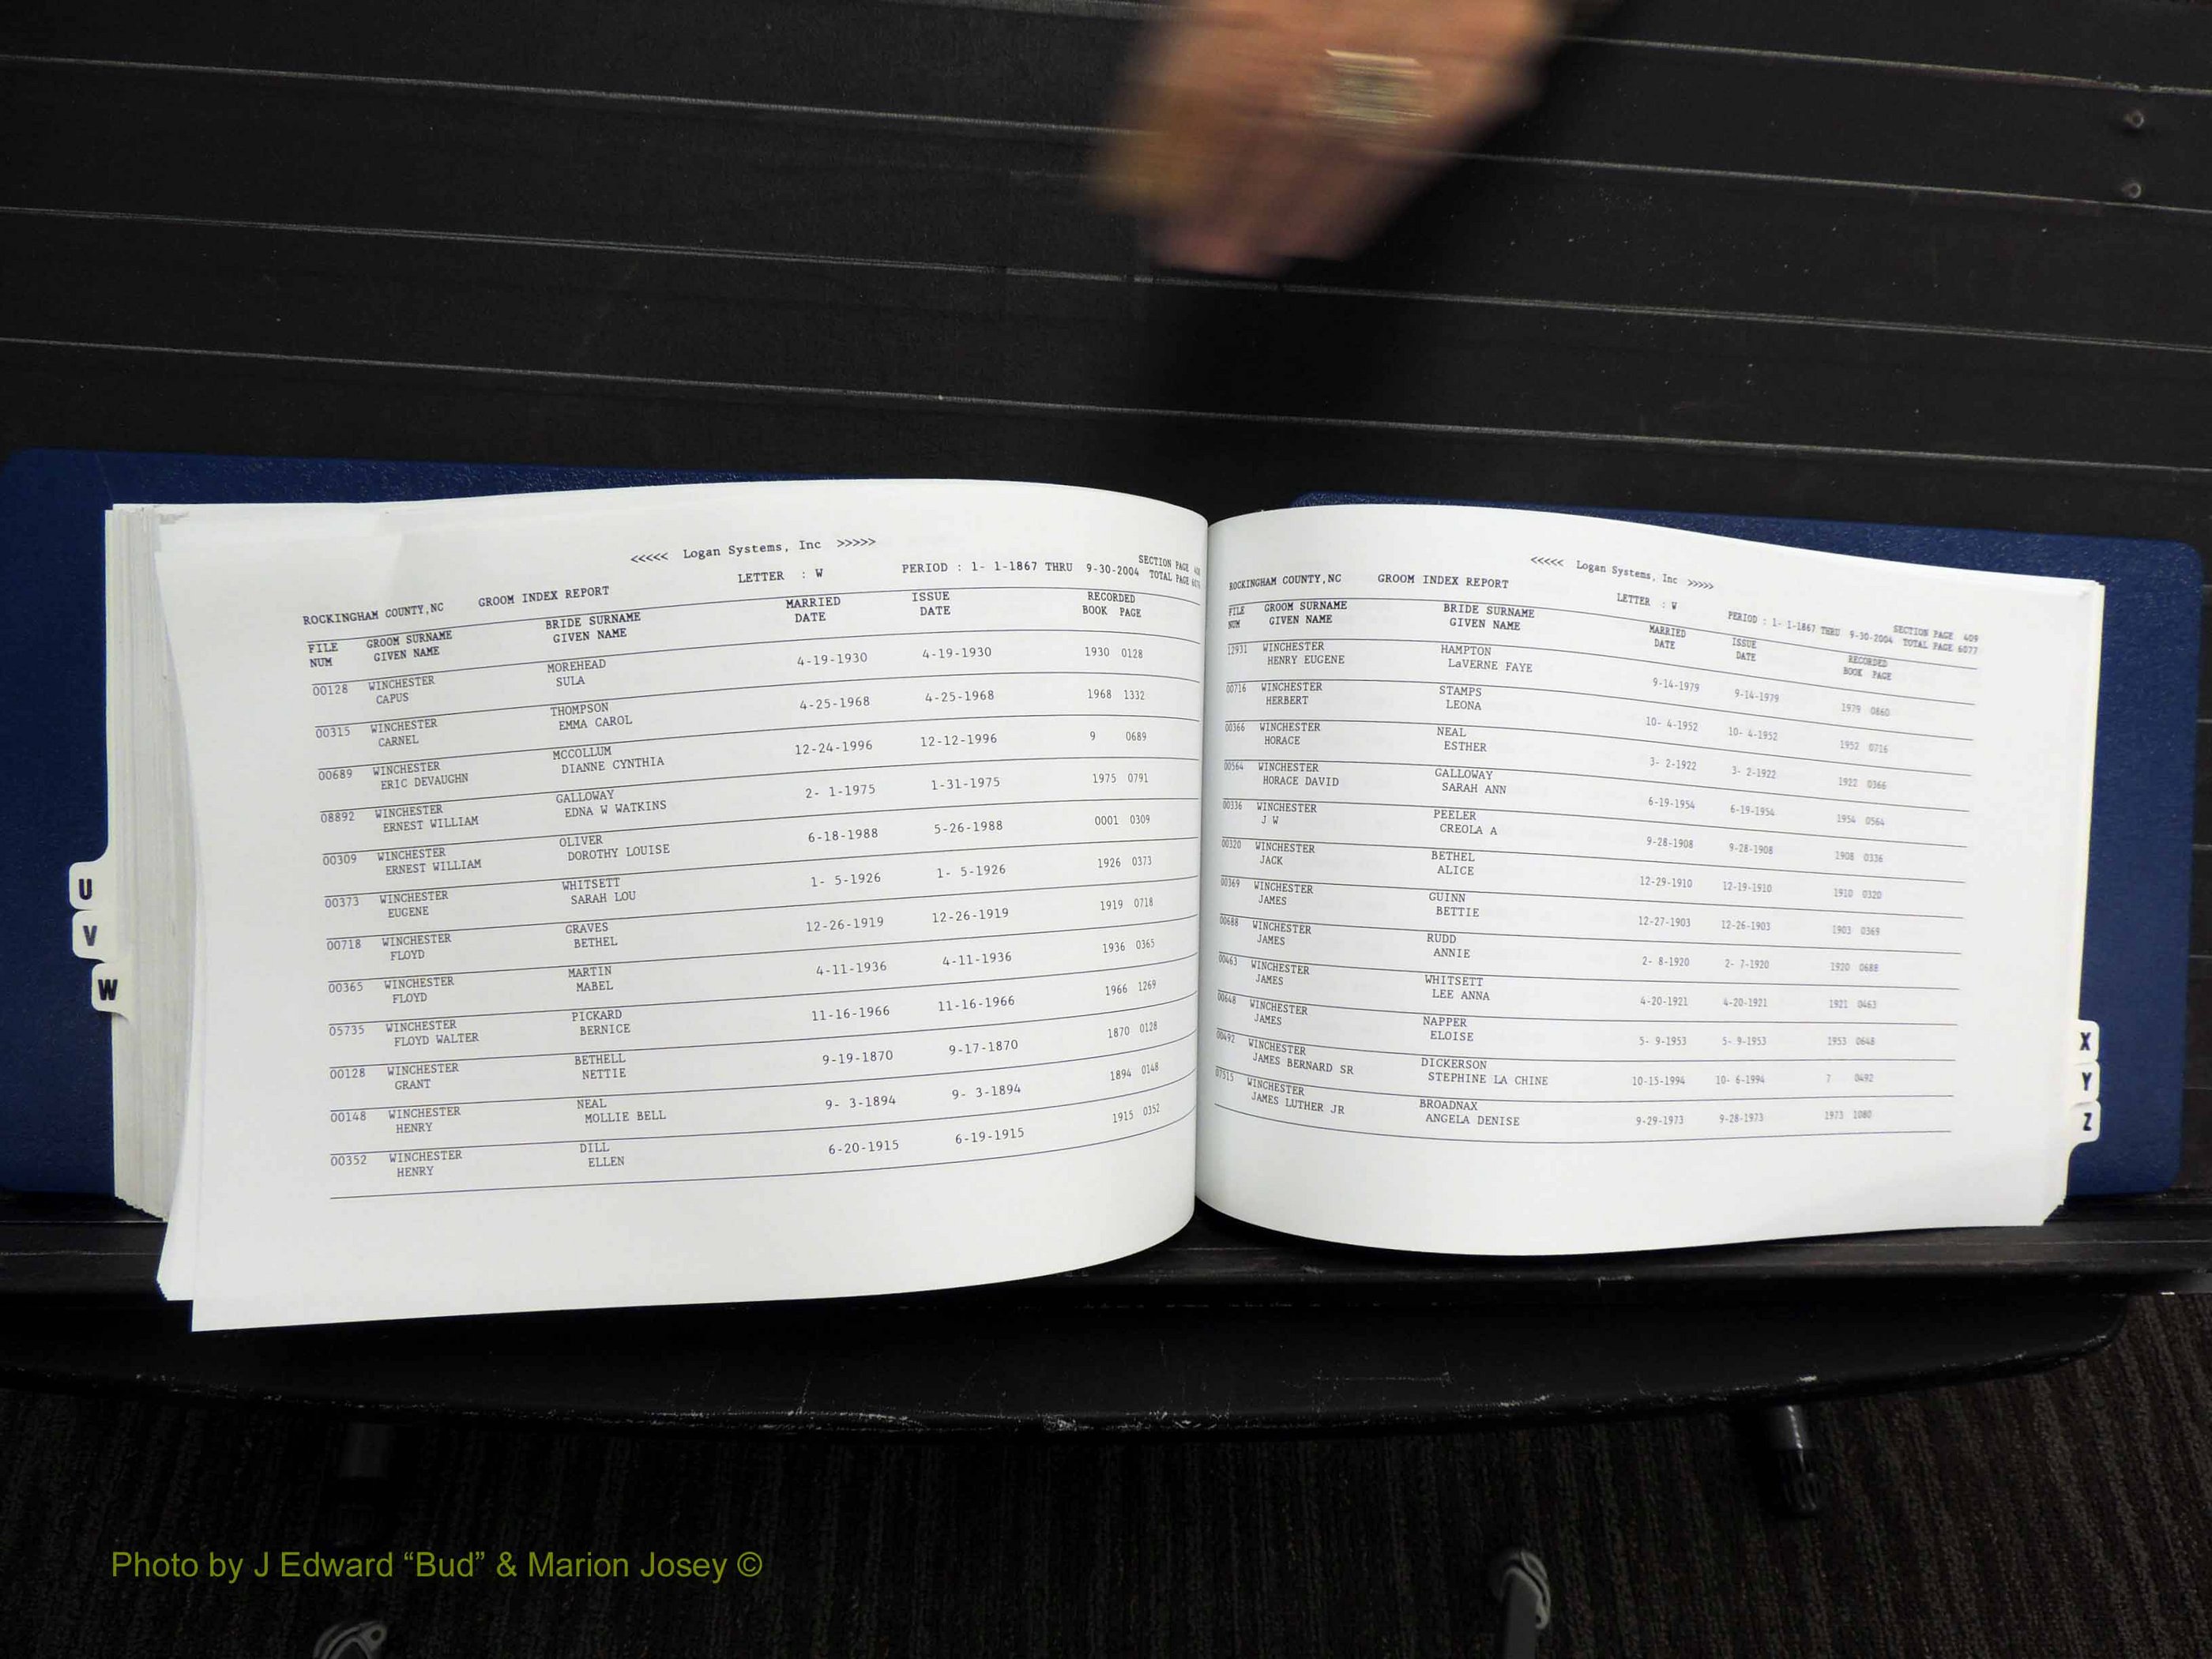 <<<<< Logan Systems, Inc >>>>>
SECTION PAGE
ROCKINGHAM COUNTY,NC GROOM INDEX REPORT LETTER : W PERIOD : 1- 1-1867 THRU 9-30-2004 TOTAL PAGE
FILE GROOM SURNAME BRIDE SURNAME MARRIED ISSUE RECORDED
NUM GIVEN NAME GIVEN NAME DATE DATE BOOK PAGE
00128 WINCHESTER MOREHEAD 4-19-1930 4-19-1930 1930 0128
CAPUS SULA
00315 WINCHESTER THOMPSON 4-25-1968 4-25-1968 1968 1332
CARNEL EMMA CAROL
00689 WINCHESTER MCCOLLUM 12-24-1996 12-12-1996 9 0689
ERIC DEVAUGHN DIANNE CYNTHIA
08892 WINCHESTER GALLOWAY 2- 1-1975 1-31-1975 1975 0791
ERNEST WILLIAM EDNA W WATKINS
00309 WINCHESTER OLIVER 6-18-1988 5-26-1988 0001 0309
ERNEST WILLIAM DOROTHY LOUISE
00373 WINCHESTER WHITSETT 1- 5-1926 1- 5-1926 1926 0373
EUGENE SARAH LOU
00718 WINCHESTER GRAVES 12-26-1919 12-26-1919 1919 0718
FLOYD BETHEL
00365 WINCHESTER MARTIN 4-11-1936 4-11-1936 1936 0365
FLOYD MABEL
05735 WINCHESTER PICKARD 11-16-1966 11-16-1966 1966 1269
FLOYD WALTER BERNICE
00128 WINCHESTER BETHELL 9-19-1870 9-17-1870 1870 0128
GRANT NETTIE
00148 WINCHESTER NEAL 9- 3-1894 9- 3-1894 1894 0148
HENRY MOLLIE BELL
00352 WINCHESTER DILL 6-20-1915 6-19-1915 1915 0352
HENRY ELLEN
U
V
W
<<<<< Logan Systems, Inc >>>>>
SECTION PAGE 409
ROCKINGHAM COUNTY,NC GROOM INDEX REPORT LETTER : W PERIOD : 1- 1-1867 THRU 9-30-2004 TOTAL PAGE 6077
FILE GROOM SURNAME BRIDE SURNAME MARRIED ISSUE RECORDED
NUM GIVEN NAME GIVEN NAME DATE DATE BOOK PAGE
12931 WINCHESTER HAMPTON 9-14-1979 9-14-1979 1979 0860
HENRY EUGENE LaVERNE FAYE
00716 WINCHESTER STAMPS 10- 4-1952 10- 4-1952 1952 0716
HERBERT LEONA
00366 WINCHESTER NEAL 3- 2-1922 3- 2-1922 1922 0366
HORACE ESTHER
00564 WINCHESTER GALLOWAY 6-19-1954 6-19-1954 1954 0564
HORACE DAVID SARAH ANN
00336 WINCHESTER PEELER 9-28-1908 9-28-1908 1908 0336
J W CREOLA A
00320 WINCHESTER BETHEL 12-29-1910 12-19-1910 1910 0320
JACK ALICE
00369 WINCHESTER GUINN 12-27-1903 12-26-1903 1903 0369
JAMES BETTIE
00688 WINCHESTER RUDD 2- 8-1920 2- 7-1920 1920 0688
JAMES ANNIE
00463 WINCHESTER WHITSETT 4-20-1921 4-20-1921 1921 0463
JAMES LEE ANNA
00648 WINCHESTER NAPPER 5- 9-1953 5- 9-1953 1953 0648
JAMES ELOISE
00492 WINCHESTER DICKERSON 10-15-1994 10- 6-1994 7 0492
JAMES BERNARD SR STEPHINE LA CHINE
07515 WINCHESTER BROADNAX 9-29-1973 9-28-1973 1973 1080
JAMES LUTHER JR ANGELA DENISE
X
Y
Z
Photo by J Edward “Bud” & Marion Josey ©